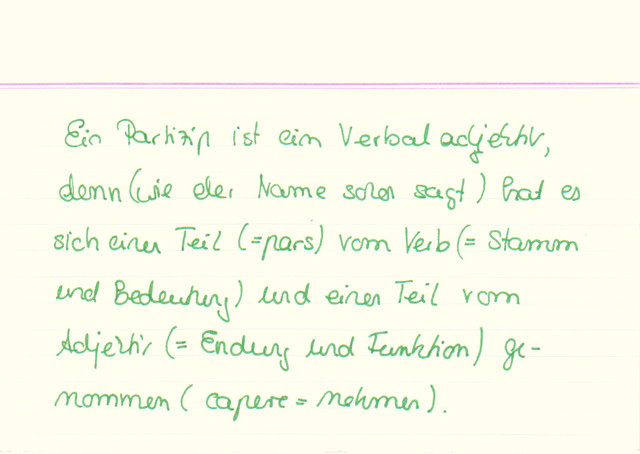 Ein Partizip ist ein Verbaladjektiv,
denn (wie der Name schon sagt) hat es
sich einen Teil (=pars) vom Verb (= Stamm
und Bedeutung) und einen Teil vom
Adjektiv (= Endung und Funktion) ge-
nommen ( capere = nehmen).